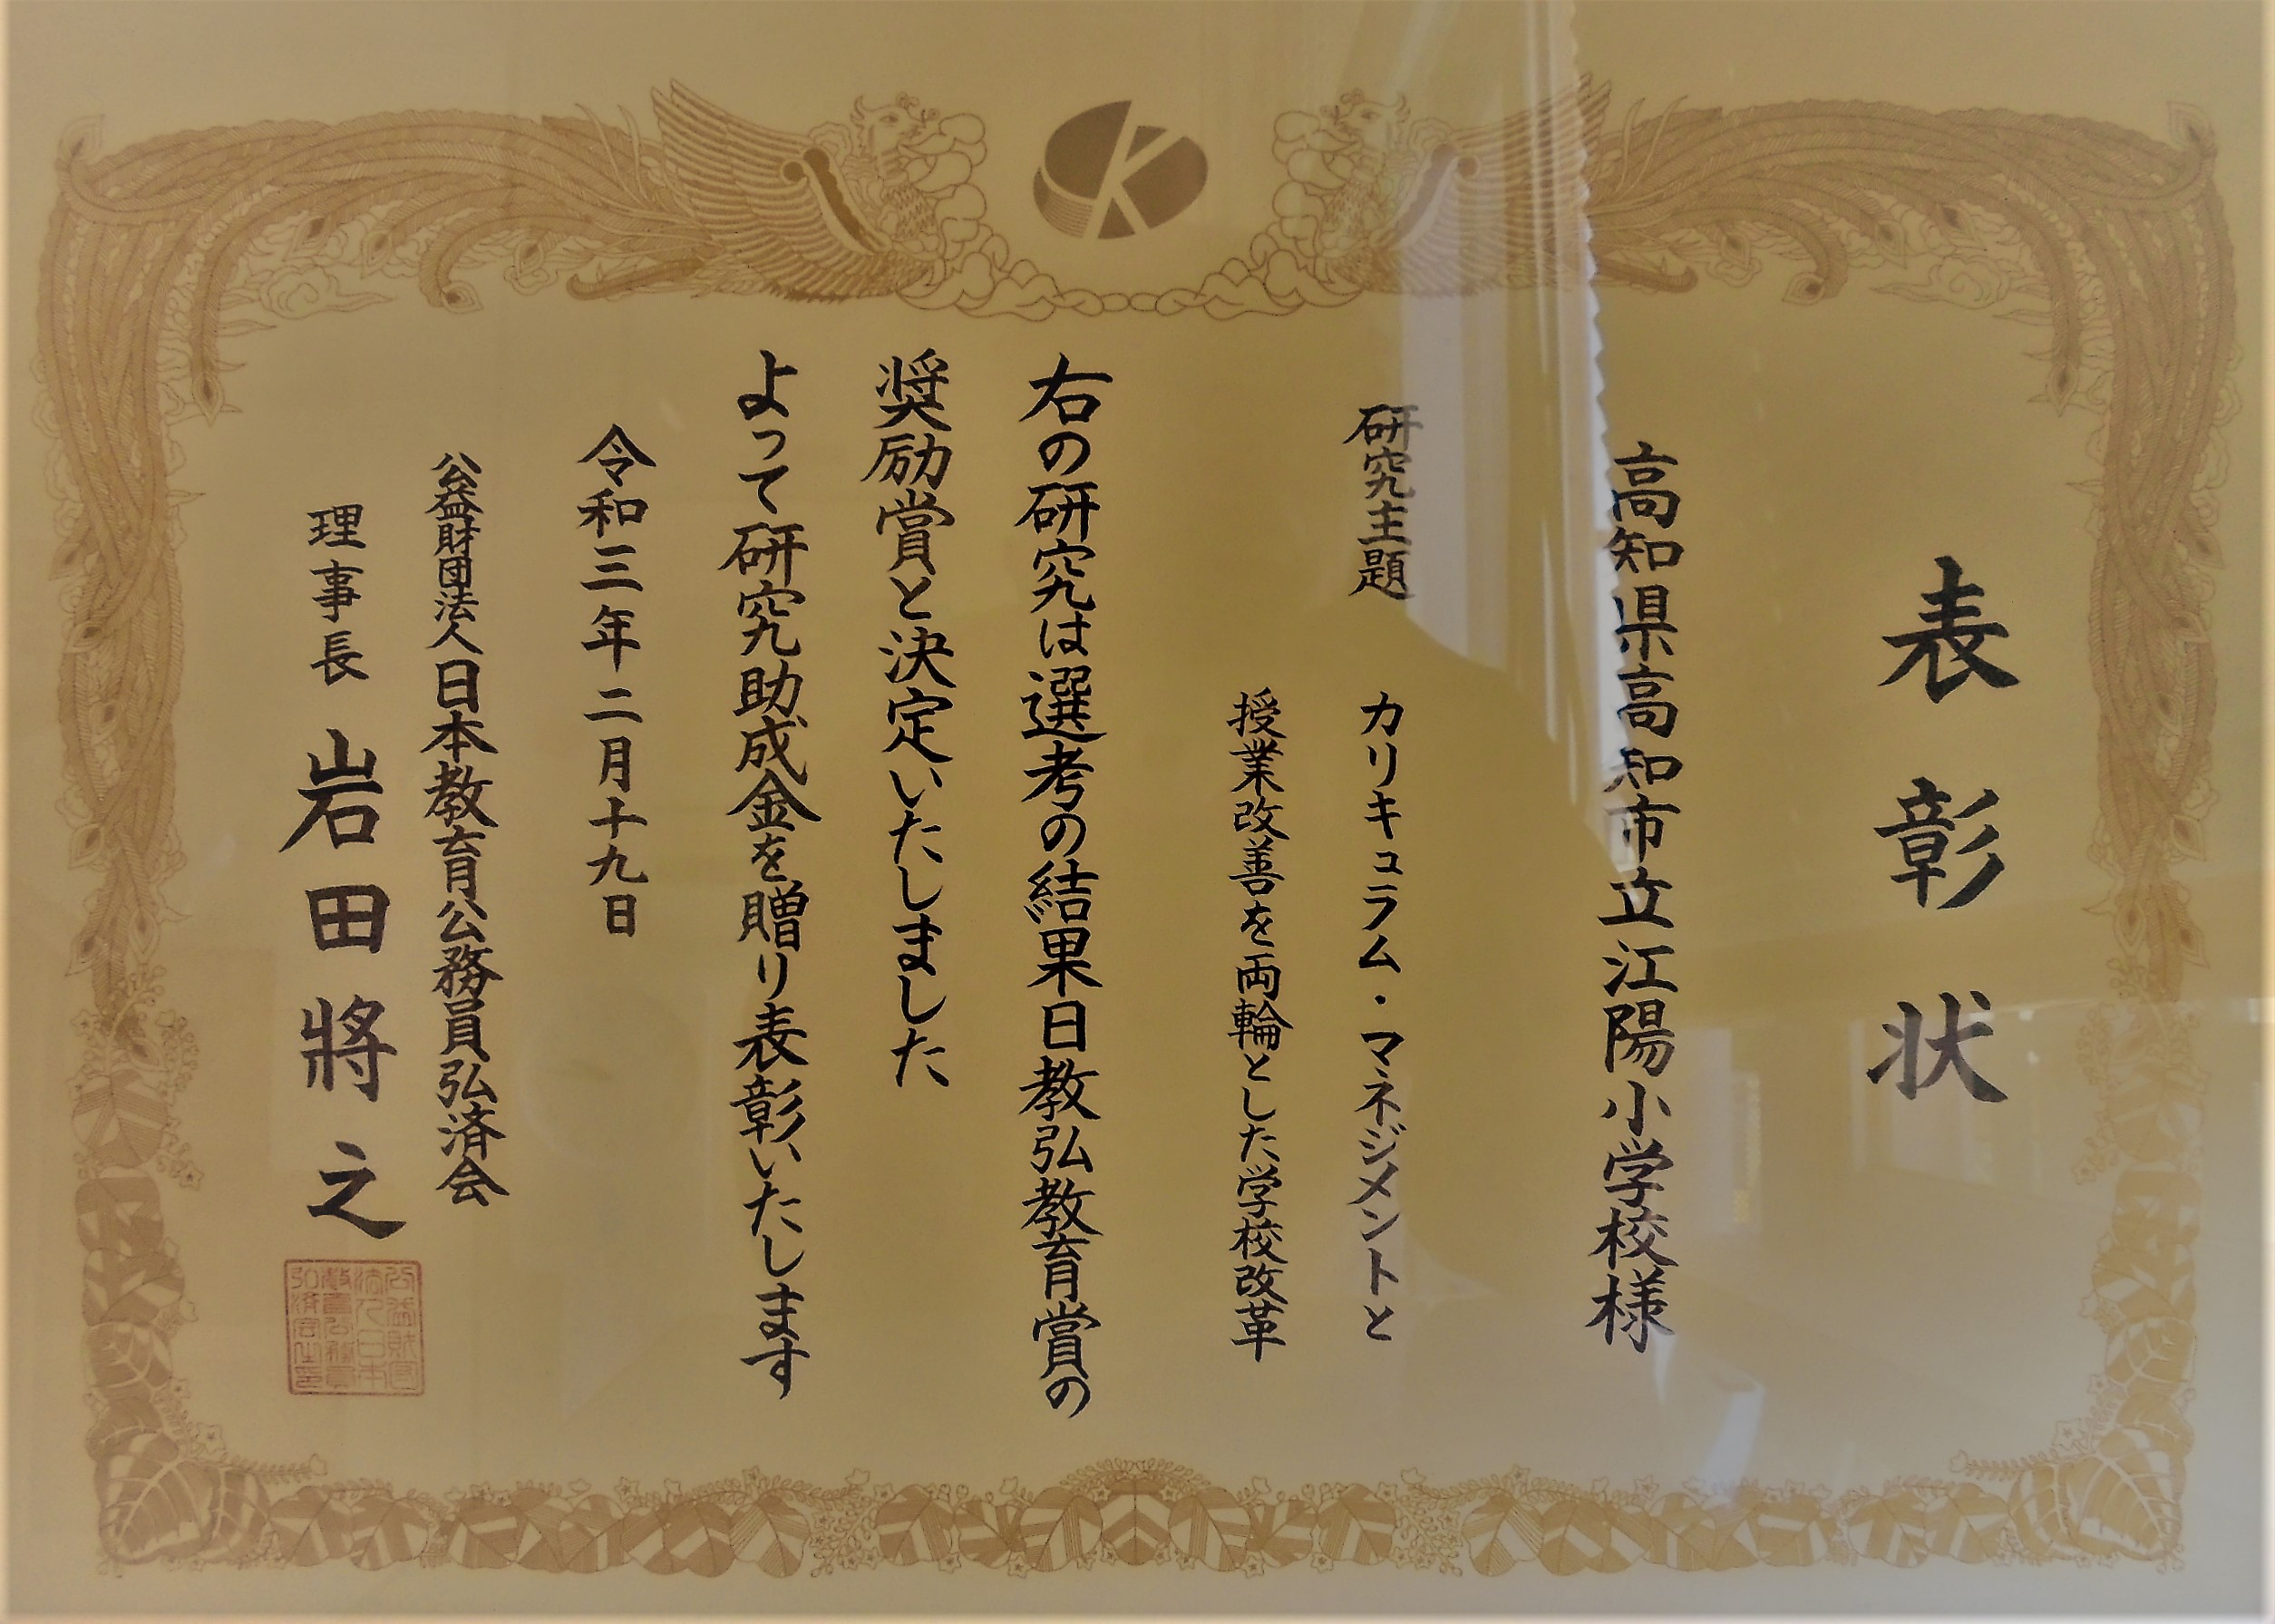 表彰状
高知県高知市立江陽小学校様
研究主題 カリキュラム・マネジメントと
授業改善を両輪とした学校改革
右の研究は選考の結果日教弘教育賞の
奨励賞と決定いたしました
よって研究助成金を贈り表彰いたします
令和三年二月十九日
公益財団法人日本教育公務員弘済会
理事長 岩田將之